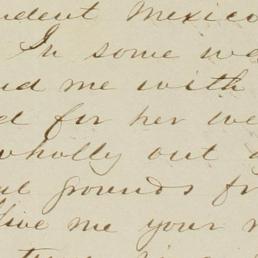 ndent Mexico
In some we
nd me with
d for her we
wholly out
al grounds fr
Give me your